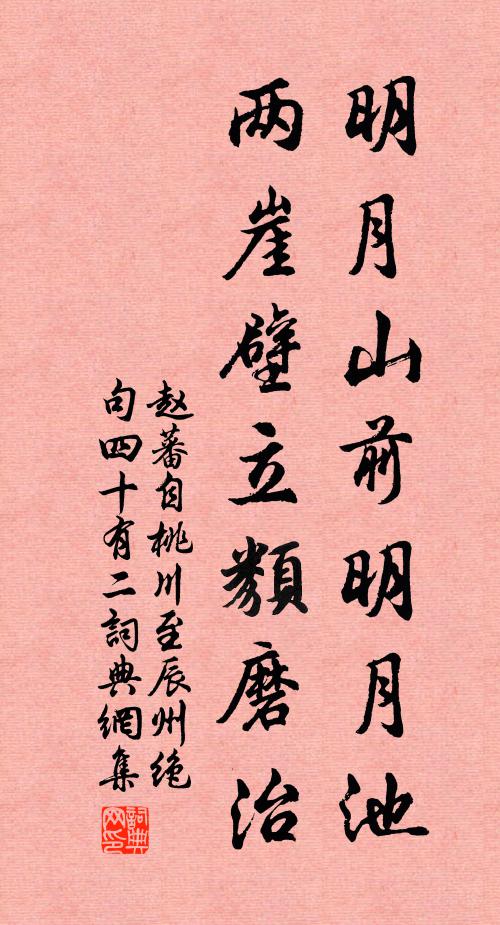 明月山前明月池
两崖壁立類磨治
赵蕃自桃川至辰州绝
句四十有二詞典網集
詞典
网印